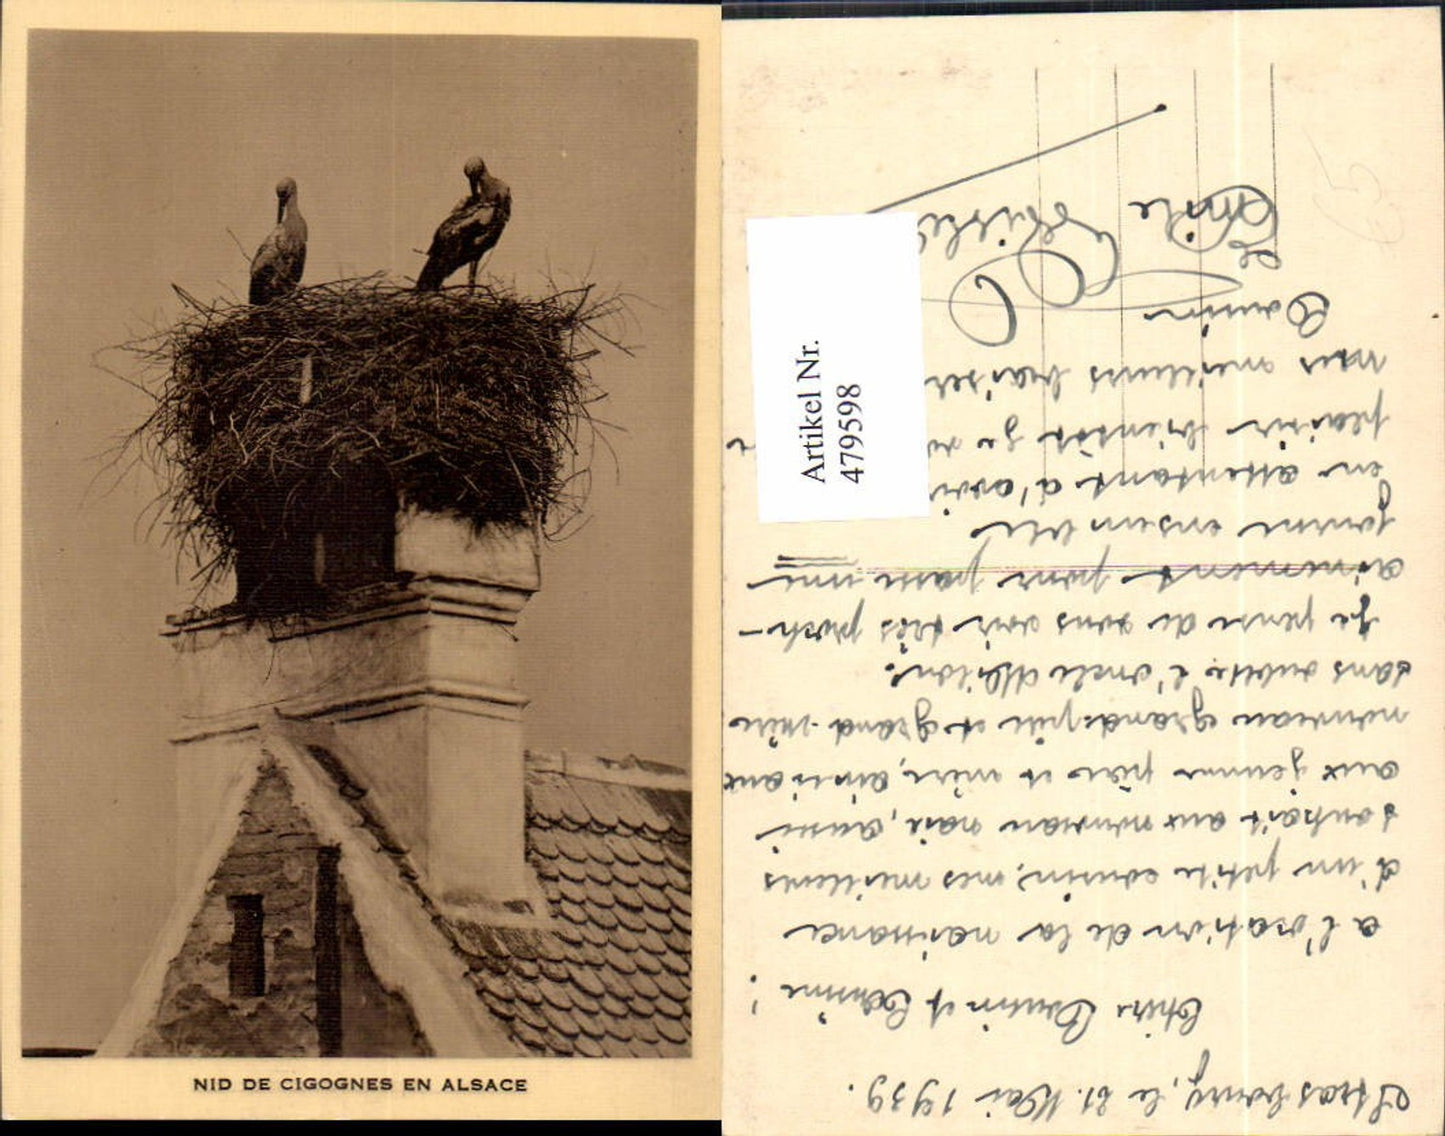 NID DE CIGOGNES EN ALSACE
Artikel Nr.
479598
Strasbourg, le 21. Mai 1939.
Chers Cousin et Cousine!
a l'ocation de la naissance
d'un petite cousin, mes meilleurs
souhait aux nouveau née, aussi
aux jeunes père et mère, ainsi aux
nouveau grand-père et grand-mère
sans oublier l'oncle
Je pense de vous voir très proch-
ainement pour passer une
journé ensemble
en attentant d'avoir
plaisir bientôt je
mes meilleurs baiser
Cousin
Emile